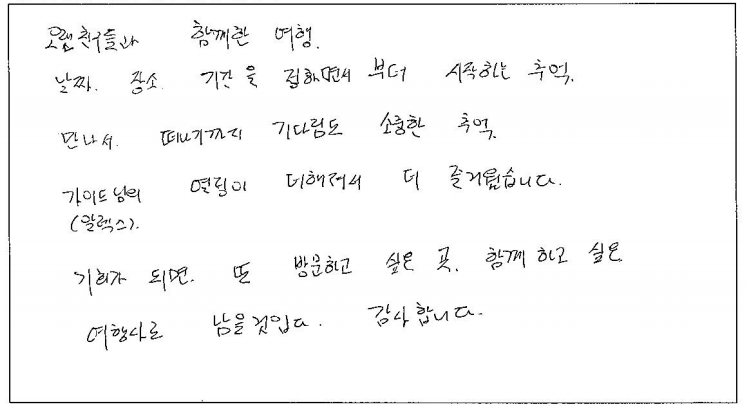 오랜친구들과 함께한 여행.
날짜. 장소. 기간을 정하면서 부터 시작하는 추억.
만나서. 떠나기까지 기다림도 소중한 추억.
가이드님의 열정이 더해져서 더 즐거웠습니다.
(알렉스).
기회가 되면. 또 방문하고 싶은 곳. 함께 하고 싶은
여행사로 남을것입다. 감사합니다.